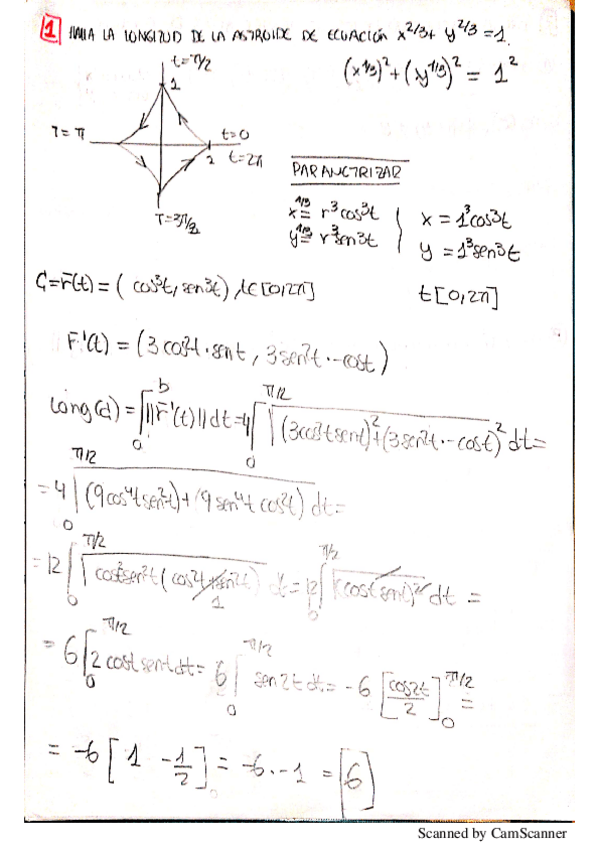 1 HALLA LA LONGITUD DE LA ASTROIDE DE ECUACIÓN x^2/3 + y^2/3 = 1.
(x^1/3)^2 + (y^1/3)^2 = 1^2
t=π/2
1
T=π
t=0
1 t=2π
T=3π/2
PARAMETRIZAR
x^1/3 = r^3cos^3t
y^1/3 = r^3sen^3t
x = 1^3cos^3t
y = 1^3sen^3t
C=r̄(t) = (cos^3t, sen^3t) t∈[0,2π]
t[0,2π]
r̄'(t) = (3cos^2t·sent, 3sen^2t·-cost)
Long(C) = ∫_0^b ||r̄'(t)||dt = 4∫_0^π/2 √((3cos^2t sent)^2+(3sen^2t·-cost)^2) dt =
= 4∫_0^π/2 √((9cos^4t sen^2t)+(9sen^4t cos^2t)) dt =
= 12∫_0^π/2 √(cos^2t sen^2t (cos^2t+sen^2t)) dt = 12∫_0^π/2 √((cost sent)^2) dt =
1
= 6∫_0^π/2 2cost sent dt = 6∫_0^π/2 sen2t dt = -6[cos2t/2]_0^π/2 =
= -6[1 - 1/2] = -6·-1 = 6
Scanned by CamScanner